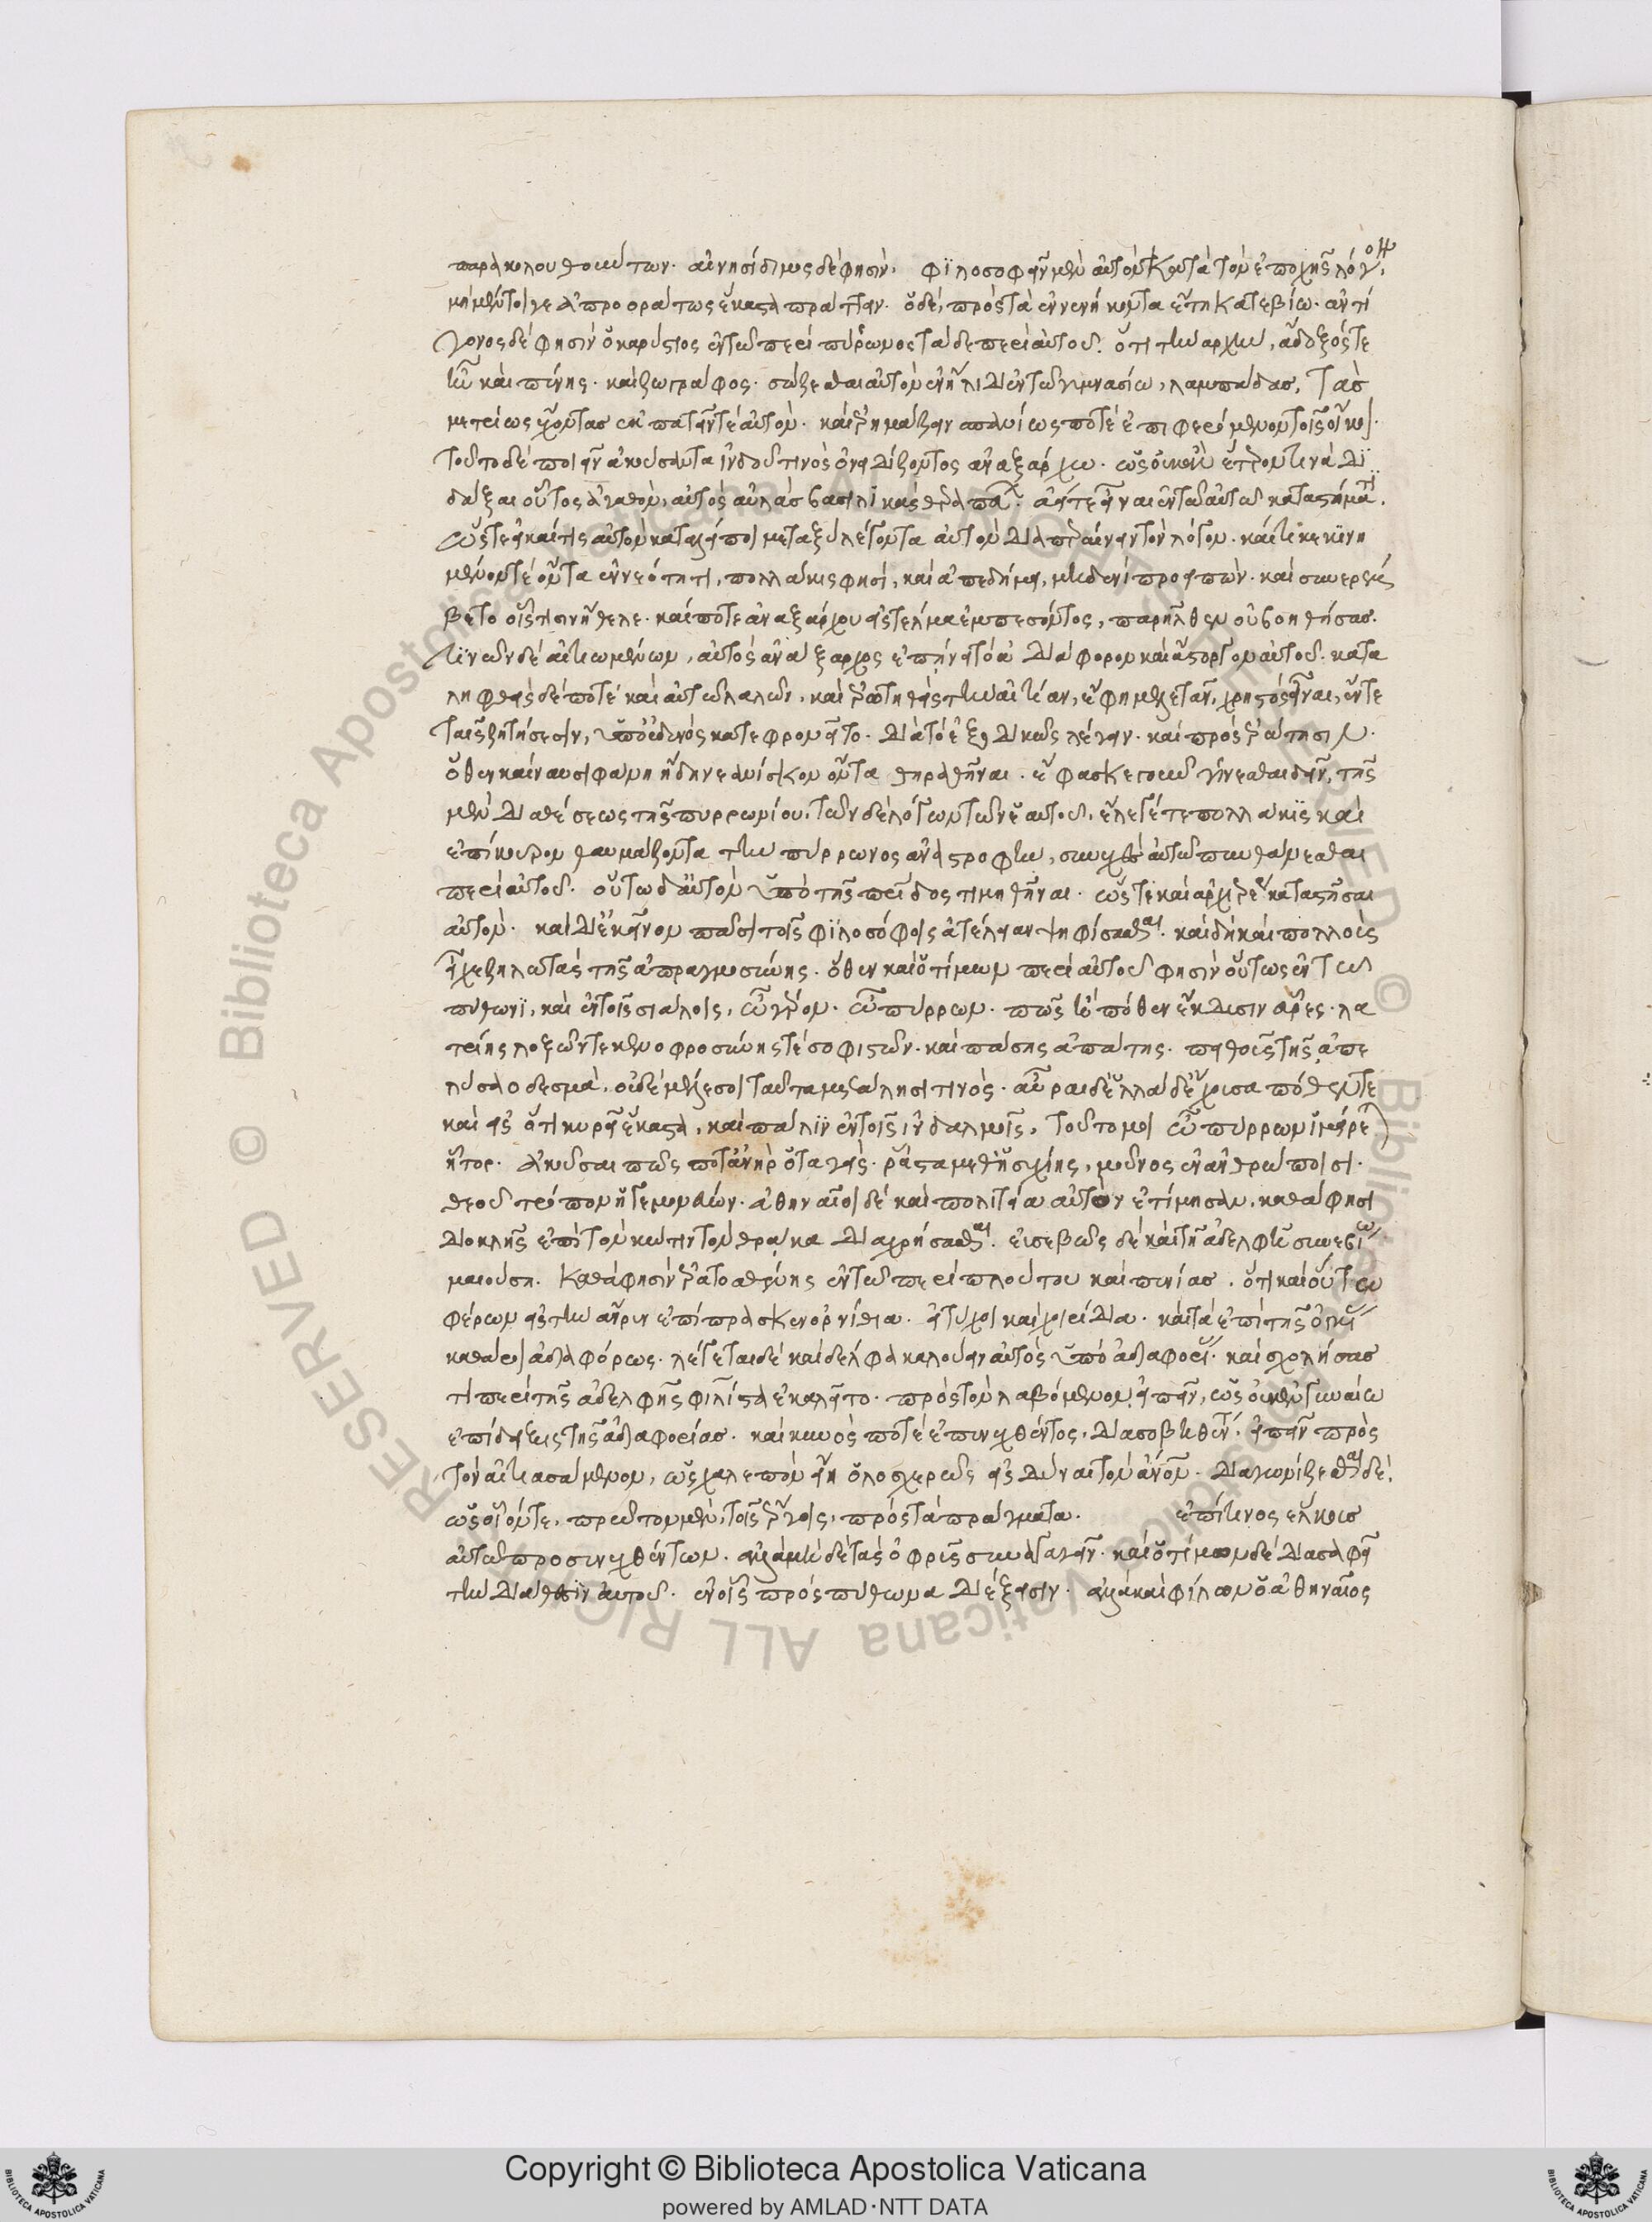 παρακολουθούντων. αἰνησίδημος δέ φησιν, φϊλοσοφεῖν μὲν αὐτὸν κατὰ τὸν ἐποχῆς λόγον,
μὴ μέντοιγε ἀπροοράτως ἕκαστα πράττειν. ὁ δὲ, πρὸς τὰ ἐνενήκοντα ἔτη κατεβίω. ἀντί
γονος δέ φησιν ὁ καρύστιος ἐν τῶ περὶ πύρρωνος τάδε περὶ αὐτοῦ. ὅτι τὴν ἀρχὴν, ἄδοξός τε
ἦν καὶ πένης. καὶ ζωγράφος. σώζεσθαι αὐτοῦ ἐν ἤλιδι ἐν τῶ γυμνασίω, λαμπάδας, τὰς
μετρίως ἔχοντας ἐκπατεῖν τε αὐτὸν. καὶ ἐρημάζειν σπανίως ποτὲ ἐπιφερόμενον τοῖς οἴκοι.
τοῦτο δὲ ποιεῖν ἀκούσαντα ἰνδοῦ τινὸς ὀνειδίζοντος ἀναξάρχω. ὡς οὐκ ἂν ἕτερόν τινα δϊ
δάξαι οὗτος ἀγαθὸν, αὐτὸς αὐλὰς βασιλικὰς θεραπεύων. ἀεί τε εἶναι ἐν τῶ αὐτῶ καταστήματι.
ὥστε εἰ καί τις αὐτὸν καταλείποι μεταξὺ λέγοντα αὐτὸν διαπεραίνειν τὸν λόγον. καίτι κεκϊνη
μένον τε ὄντα ἐν νεότητι, πολλάκις φησὶ, καὶ ἀπεδήμει, μηδενὶ προειπών. καὶ συνερρέμ
βετο οἷστισιν ἤθελε. καί ποτε ἀναξάρχου εἰς τέλμα ἐμπεσόντος, παρῆλθεν οὐ βοηθήσας.
τινῶν δὲ αἰτιωμένων, αὐτὸς ἀνάξαρχος ἐπήνει τὸ ἀδιάφορον καὶ ἄστοργον αὐτοῦ. κατα
ληφθεὶς δέ ποτε καὶ αὑτῶ λαλῶν, καὶ ἐρωτηθεὶς τὴν αἰτίαν, ἔφη μελετᾶν, χρηστὸς εἶναι, ἔν τε
ταῖς ζητήσεσιν, ὑπ' οὐδενὸς κατεφρονεῖτο. διὰ τὸ ἐξοδικῶς λέγειν. καὶ πρὸς ἐρώτησιν.
ὅθεν καὶ ναυσιφάνη ἤδη νεανίσκον ὄντα θηραθῆναι. ἔφασκε γοῦν γίνεσθαι δεῖν, τῆς
μὲν διαθέσεως τῆς πυρρωνίου, τῶν δὲ λόγων τῶν ἑαυτοῦ. ἔλεγέ τε πολλάκϊς καὶ
ἐπίκουρον θαυμάζοντα τὴν πύρρωνος ἀναστροφὴν, συνεχὲς αὐτῶ πυνθάνεσθαι
περὶ αὐτοῦ. οὕτω δ' αὐτὸν ὑπὸ τῆς πατρίδος τιμηθῆναι. ὥστε καὶ ἀρχιερέα καταστῆσαι
αὐτὸν. καὶ δι' ἐκεῖνον πᾶσι τοῖς φϊλοσόφοις ἀτέλειαν ψηφίσασθαι. καὶ δὴ καὶ πολλοὺς
εἶχε ζηλωτὰς τῆς ἀπραγμοσύνης. ὅθεν καὶ ὁ τίμων περὶ αὐτοῦ φησιν οὕτως ἐν τῶ
πύθωνϊ, καὶ ἐν τοῖς σιάλοις, ὦ γέρον. ὦ πύρρων. πῶς ἢ πόθεν ἔκδυσιν εὗρες. λα
τρίης δοξῶν τε κενοφροσύνης τὲ σοφιστῶν. καὶ πάσης ἀπάτης. πειθοῖς τῆς ἀπε
λύσαο δεσμὰ. οὐδὲ μέλεσοι ταῦτα μεταλλῆσαι τινὸς. αὖραι δ' ἑλλάδ' ἔχουσα πόθεν τε
καὶ εἰς ὅτι κυρεῖ ἕκαστα, καὶ πάλϊν ἐν τοῖς ἰνδαλμοῖς, τοῦτό μοι ὦ πύρρων ἱμείρε(ται)
ἦτορ. ἀκοῦσαι πῶς ποτ' ἀνὴρ ὅτ' ἄγεις. ῥᾷστα μεθ' ἡσυχίης, μοῦνος ἐν ἀνθρώποισι.
θεοῦ τρόπον ἡγεμονεύων. ἀθηναῖοι δὲ καὶ πολιτεία αὐτὸν ἐτίμησαν. καθά φησι
διοκλῆς ἐπὶ τὸν κώτην τὸν θρᾷκα διαχρήσασθαι. εὐσεβῶς δὲ καὶ τῇ ἀδελφῇ συνεβίω
μαιούσῃ. καθά φησιν ἐρατοσθένης ἐν τῶ περὶ πλούτου καὶ πενίας. ὅτι καὶ οὕτω
φέρων εἰς τὴν ἀγορὰν ἐπίπρασκεν ὀρνίθια. εἰ τύχοι καὶ χοιρίδια. καὶ τὰ ἐπὶ τῆς οἰκίας
καθαίρει ἀδιαφόρως. λέγεται δὲ καὶ δέλφακα λούειν αὐτὸς ὑπὸ ἀδιαφορίας. καὶ χολήσας
τι περὶ τῆς ἀδελφῆς φιλίστα ἐκαλεῖτο. πρὸς τὸν λαβόμενον εἰπεῖν, ὡς οὐκ ἐν γυναίω
ἐπίδειξις τῆς ἀδιαφορίας. καὶ κυνὸς ποτὲ ἐπενεχθέντος, διασοβηθέντα, εἰπεῖν πρὸς
τὸν αἰτιασάμενον, ὡς χαλεπὸν εἴη ὁλοσχερῶς ἐκδῦναι τὸν ἄνθρωπον. διαγωνίζεσθαι δὲ,
ὡς οἷόν τε, πρῶτον μὲν, τοῖς ἔργοις, πρὸς τὰ πράγματα. ἐπί τινος ἕλκους
αὐτῶ προσενεχθέντων. ἀλλὰ μηδὲ τὰς ὀφρῦς συναγαγεῖν. καὶ ὁ τίμων δὲ διασαφεῖ
τὴν διάθεσϊν αὐτοῦ. ἐν οἷς πρὸς πύθωνα διέξεισιν. ἀλλὰ καὶ φίλων ὁ ἀθηναῖος